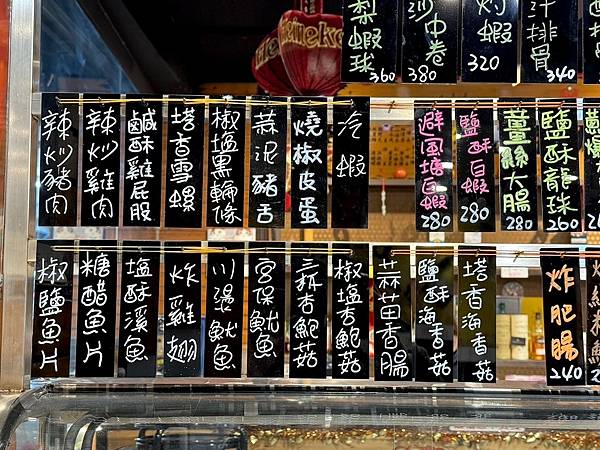 蝦球 360
中卷 380
炒蝦 320
汁排骨 340
Heineken
辣炒豬肉
辣炒雞肉
鹹酥雞屁股
塔香雪螺
椒塩黑輪條
蒜泥豬舌
燒椒皮蛋
冷蝦
避風塘白蝦 280
鹽酥白蝦 280
薑絲大腸 280
鹽酥龍珠 260
椒鹽魚片
糖醋魚片
塩酥溪魚
炸雞翅
川燙魷魚
宮保魷魚
三杯杏鮑菇
椒塩杏鮑菇
蒜苗香腸
鹽酥海香菇
塔香海香菇
炸肥腸 240